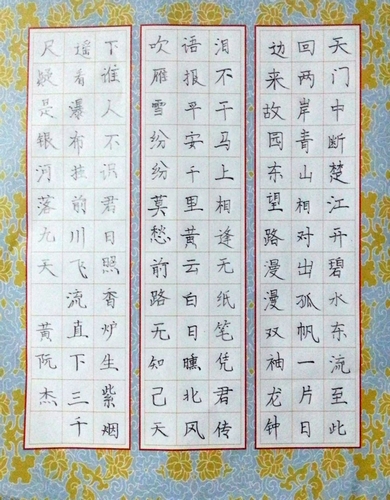 天门中断楚江开碧水东流至此
回两岸青山相对出孤帆一片日
边来故园东望路漫漫双袖龙钟
泪不干马上相逢无纸笔凭君传
语报平安千里黄云白日曛北风
吹雁雪纷纷莫愁前路无知己天
下谁人不识君日照香炉生紫烟
遥看瀑布挂前川飞流直下三千
尺疑是银河落九天 黄阮杰